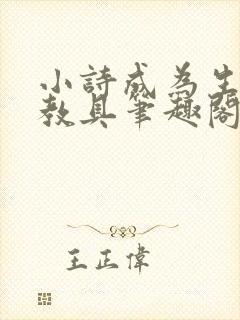 小詩成為生
教具筆趣閣
王正偉